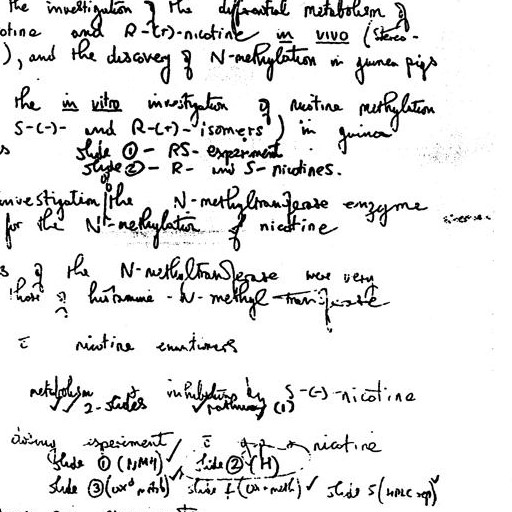 the investigation of the differential metabolism of
otine and R-(+)-nicotine in vivo (Stereo-
), and the discovery of N-methylation in guinea pigs
the in vitro investigation of nicotine methylation
S-(-)- and R-(+)-isomers) in guinea
s slide ① - RS- experiment
slide ② - R- and S- nicotines.
investigation of the N-methyltransferase enzyme
for the N-methylation of nicotine
s of the N-methyltransferase were very
those of histamine-N-methyl transferase
c̄ nicotine enantiomers
metabolism inhibition by S-(-)-nicotine
2-slides pathway (1)
experiment c̄ nicotine
slide ① (NMH) slide ② (H)
slide ③ slide 4 slide 5 (HPLC sep)